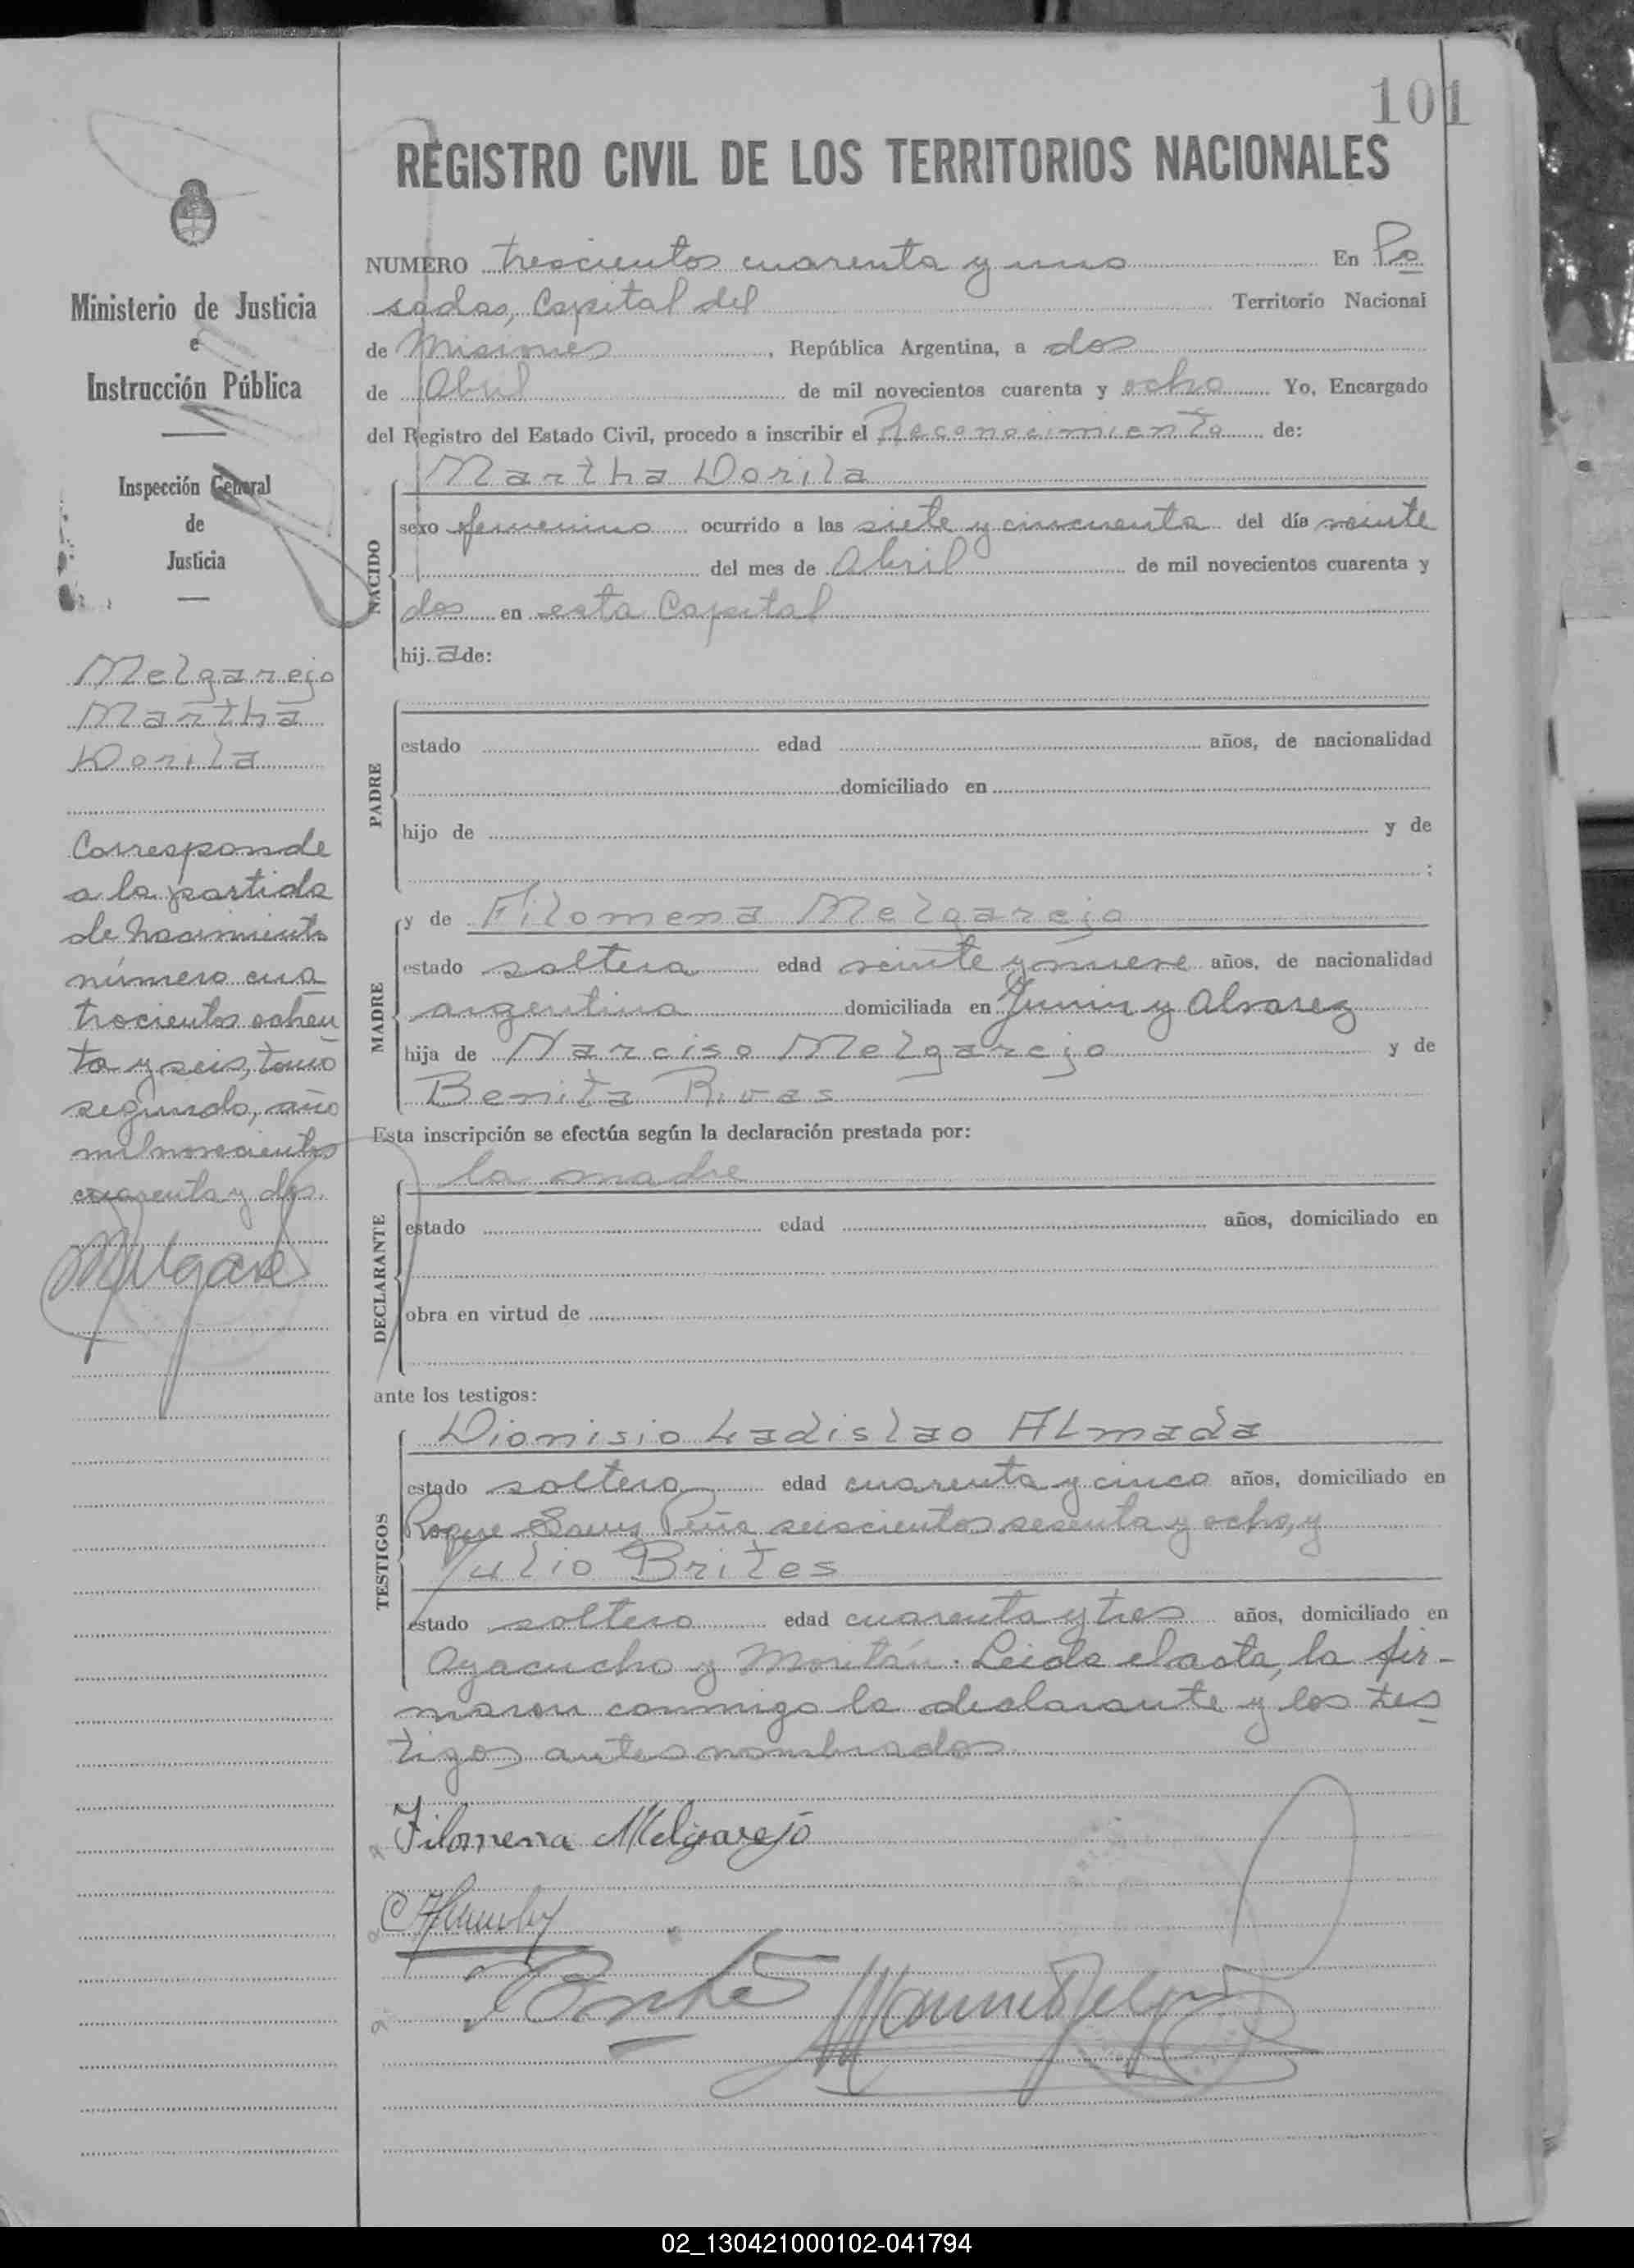 101
REGISTRO CIVIL DE LOS TERRITORIOS NACIONALES
NUMERO trescientos cuarenta y uno En Po
sadas, Capital del Territorio Nacional
de Misiones, República Argentina, a dos
de Abril de mil novecientos cuarenta y ocho Yo, Encargado
del Registro del Estado Civil, procedo a inscribir el Reconocimiento de:
NACIDO
Martha Dorila
sexo femenino ocurrido a las siete y cincuenta del día veinte
del mes de Abril de mil novecientos cuarenta y
dos en esta Capital
hija de:
PADRE
estado edad años, de nacionalidad
domiciliado en
hijo de y de
;
MADRE
y de Filomena Melgarejo
estado soltera edad veinte y nueve años, de nacionalidad
argentina domiciliada en Junin y Alvarez
hija de Narciso Melgarejo y de
Benita Rivas
Esta inscripción se efectúa según la declaración prestada por:
DECLARANTE
la madre
estado edad años, domiciliado en
obra en virtud de
ante los testigos:
TESTIGOS
Dionisio Ladislao Almada
estado soltero edad cuarenta y cinco años, domiciliado en
Roque Saenz Peña seiscientos sesenta y ocho, y
Julio Brites
estado soltero edad cuarenta y tres años, domiciliado en
Ayacucho y Moritán. Leida el acta, la fir-
maron conmigo la declarante y los tes
tigos antes nombrados
Filomena Melgarejo
Brites
Ministerio de Justicia
e
Instrucción Pública
Inspección General
de
Justicia
Melgarejo
Martha
Dorila
Corresponde
a la partida
de nacimiento
número cua
trocientos ochen
ta y seis, tomo
segundo, año
mil novecientos
cuarenta y dos
02_130421000102-041794